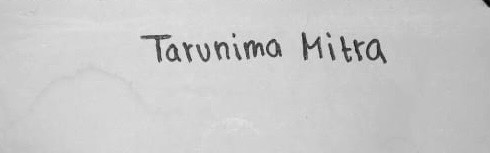 Tarunima Mitra